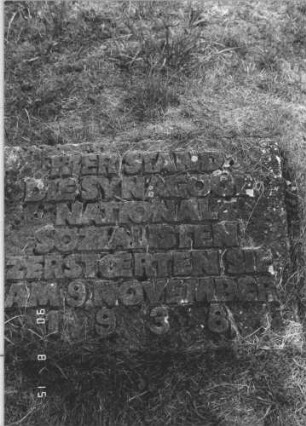 HIER STAND
DIE SYNAGOGE
DIE NATIONAL
SOZIALISTEN
ZERSTOERTEN SIE
AM 9. NOVEMBER
1938